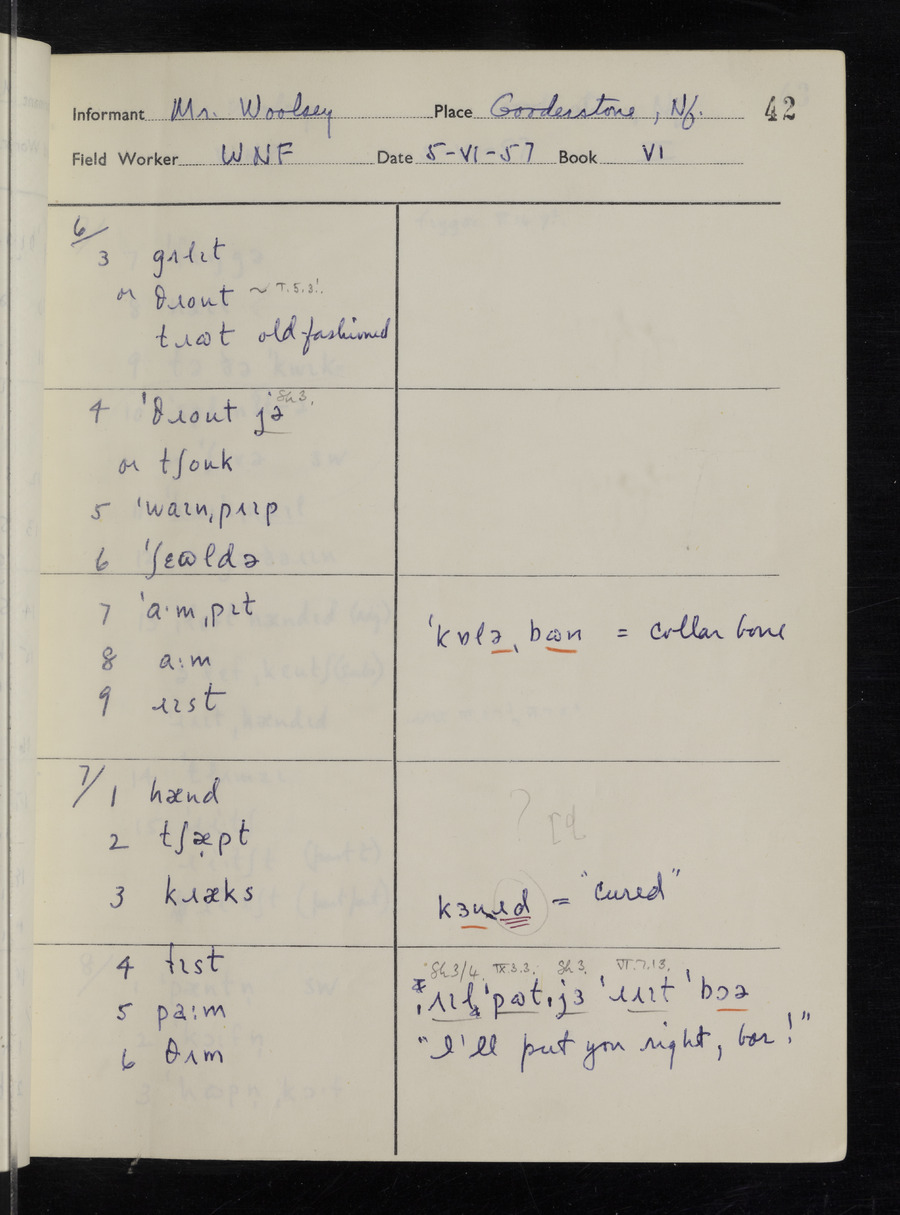 Informant Mr. Woolsey Place Gooderstone, Nf. 42
Field Worker WNF Date 5-VI-57 Book VI
6/
3 gɹɫɪt
or θɹout ~ T.5.3!.
tɹɷt old-fashioned
4 ˈθɹout jə Sh 3.
or tʃouk
5 ˈwaɪnˌpɹɪp
6 ˈʃɛɷldə
7 ˈa·mˌpɪt
8 a:m
9 ɹɪst
ˈkɒləˌbɷn = collar bone
7/1 hænd
2 tʃæ̣pt
3 kɹæks
? [d
kɜuɹd = "cured"
4 fɪst
5 pa:m
6 θɪm
Sh 3/4. IX.3.3. Sh 3. VI.7.13.
ˈpɷt ˌjɜ ˈɹɪt ˈbɔə
"I'll put you right, bor!"